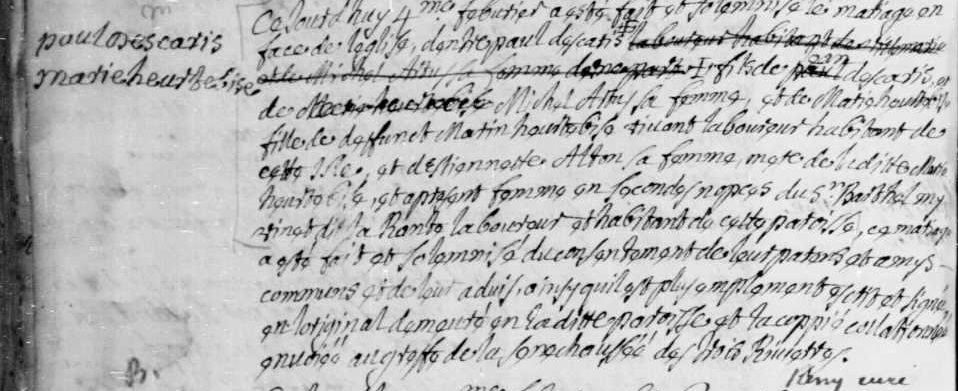 Cejourd'huy 4me feburier a esté fait et solemnisé le mariage en
paul descaris
face de l'eglise, dentre paul descaris laboureur habitant de
marie heurtebise
et de Michel Artus sa femme dune part I fils de paul descaris, et
de Marie heurtebise Michel Artus sa femme, et de Marie heurtebise
fille de deffunct Marin heurtebise vivant laboureur habitant de
cette Isle, et destiennette Alton sa femme, mere de laditte Marie
heurtebise, et apresent femme en secondes nopces du Sr Barthelmy
vinet dit la Rente laboureur et habitant de cette paroisse, ce mariage
a esté fait et solemnisé du consentement de leur parens et amys
communs et de leur advis, ainsy quil est plus emplement escrit et signé
en loriginal demeuré en laditte paroisse et la coppie collationnée
envoiée au greffe de la senechaussée des trois Riuieres.
B.
Remy curé